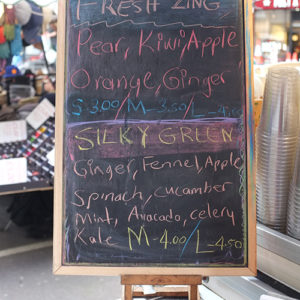 FRESH ZING
Pear, Kiwi, Apple
Orange, Ginger
S 3.00/ M-3.50/ L-4.00
SILKY GREEN
Ginger, Fennel, Apple
Spinach, cucumber
Mint, Avacado, celery
Kale M-4.00/ L-4.50